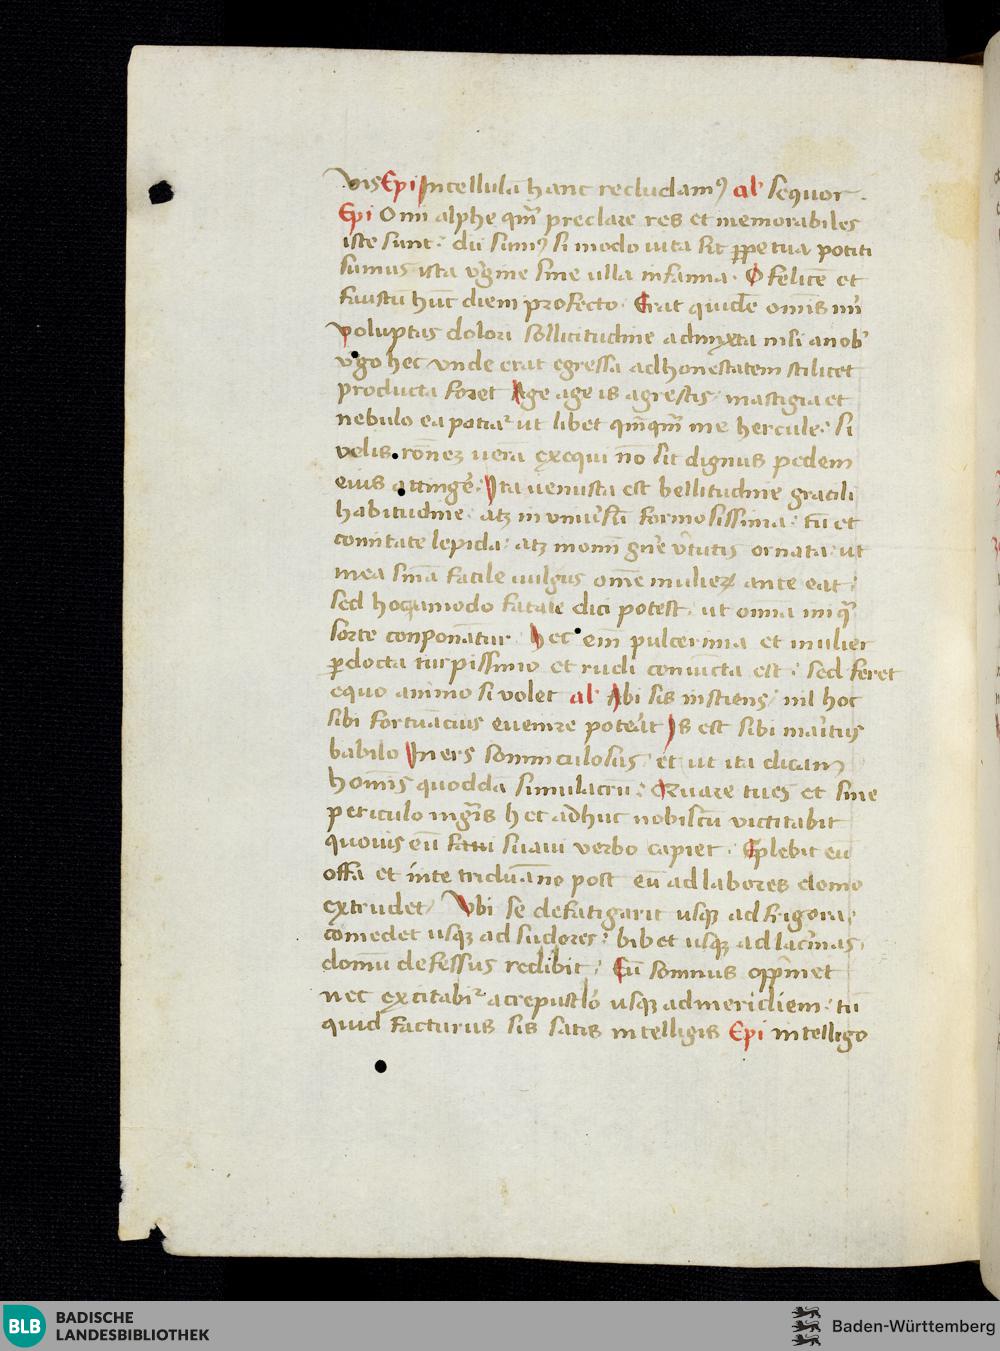 vis Epi Incellulā hanc recludam⁹ al' sequor.
Epi O mi alphe qm̄ preclare res et memorabiles
iste sunt: dii sum⁹ si modo uita sit ꝑpetua potiti
sumus ista v̓gine sine ulla infamia. O felicē et
faustū hūc diem profecto. Erat quidē om̄is mi
voluptas dolori sollicitudine admyxta nisi anob'
v̓go hec vnde erat egressa adhonestatem scilicet
producta foret Age age is agrestis/ mastigia et
nebulo ea potiaʳ ut libet qm̄qm̄ me hercule: si
velis rōnez uerā exequi nō sit dignus pedem
eius attingē. Ita uenusta est bellitudine gracili
habitudine. atꝫ in vniu̓sū formosissima: tū et
comitate lepida: atꝫ mom̄ gn̄e v̓tutis ornata: ut
mea sn̄ia facile uulgus om̄e mulieꝝ ante eat:
sed hoc quamodo fatale dici potest. ut omnia iniq̄
sorte conponātur. hec em̄ pulcerima et mulier
ꝑdocta turpissimo et rudi conuicta est: sed feret
equo animo si volet al' Abi sis insciens/ nil hoc
sibi fortunacius euenire poterat Is est sibi maritus
babilo Iners somniculosus/ et ut ita dicam
homīs quoddā simulacrū: Quare tues et sine
periculo mgr̄is hec adhuc nobiscū victitabit
quouis eū fatui suaui verbo capiet. Eplebit eū
offa et inte triduāno post eū ad labores domo
extrudet/ Vbi se defatigarit usqꝫ ad frigora:
comedet usqꝫ ad sudores: bibet usqꝫ ad lacrimas,
domū defessus redibit: Cū somnus opp̄rimet
nec excitabiʳ a crepusclo usqꝫ ad meridiem: tū
quid facturus sis satis intelligis Epi intellego
BLB
BADISCHE
LANDESBIBLIOTHEK
Baden-Württemberg